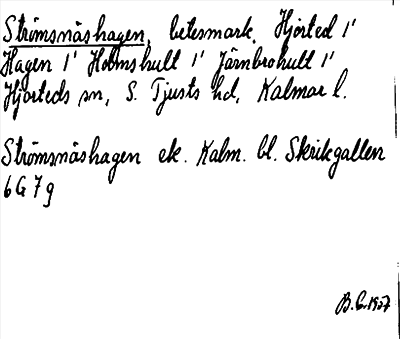 Strömsnäshagen, betesmark, Hjorted 1'
Hagen 1' Holmshult 1' Järnbrohult 1'
Hjorteds sn, S. Tjusts hd, Kalmar l.
Strömsnäshagen ek. Kalm. bl. Skrikgallen
6 G 7 g